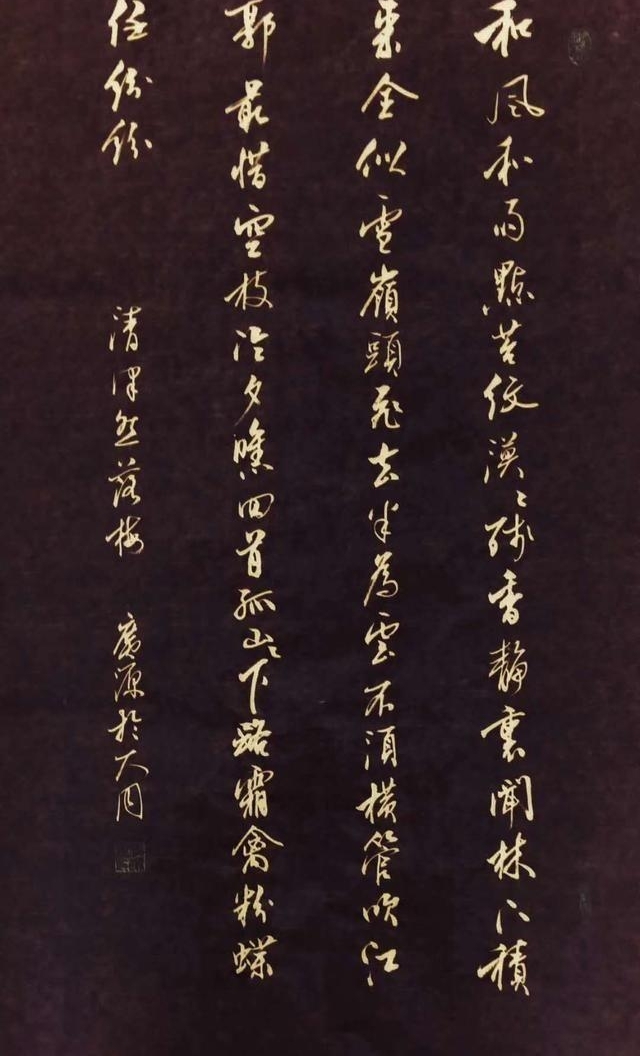 和風和雨點苔紋漠〻殘香静裏聞林下積
來全似雪嶺頭飛去半為雲不須橫管吹江
郭最惜空枝冷夕曛回首孤山〻下路霜禽粉蝶
任紛紛
清律然落梅 廣源於大同